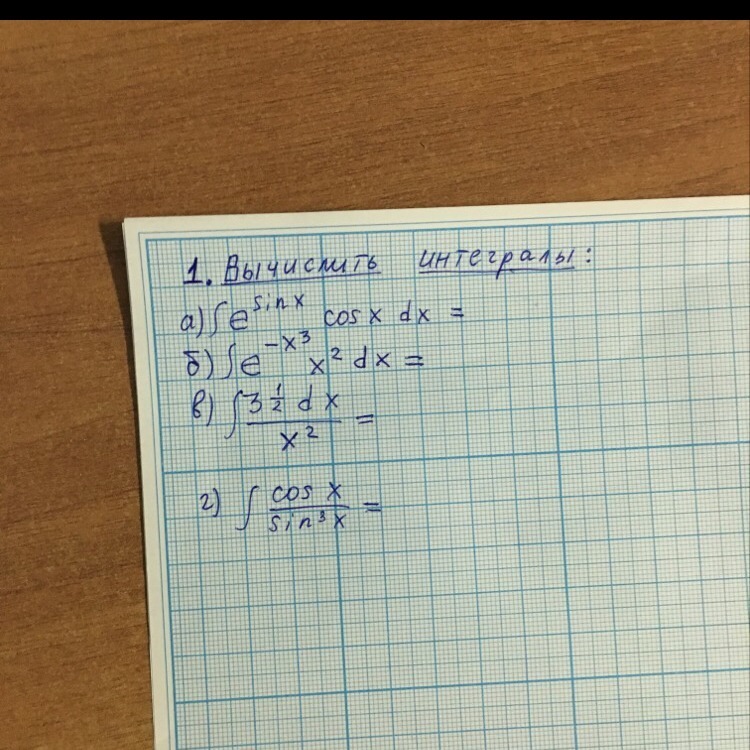 1. Вычислить интегралы:
а) ∫e^sinx cosx dx =
б) ∫e^-x³ x² dx =
в) ∫ 3 1/2 dx / x² =
г) ∫ cos x / sin³x =